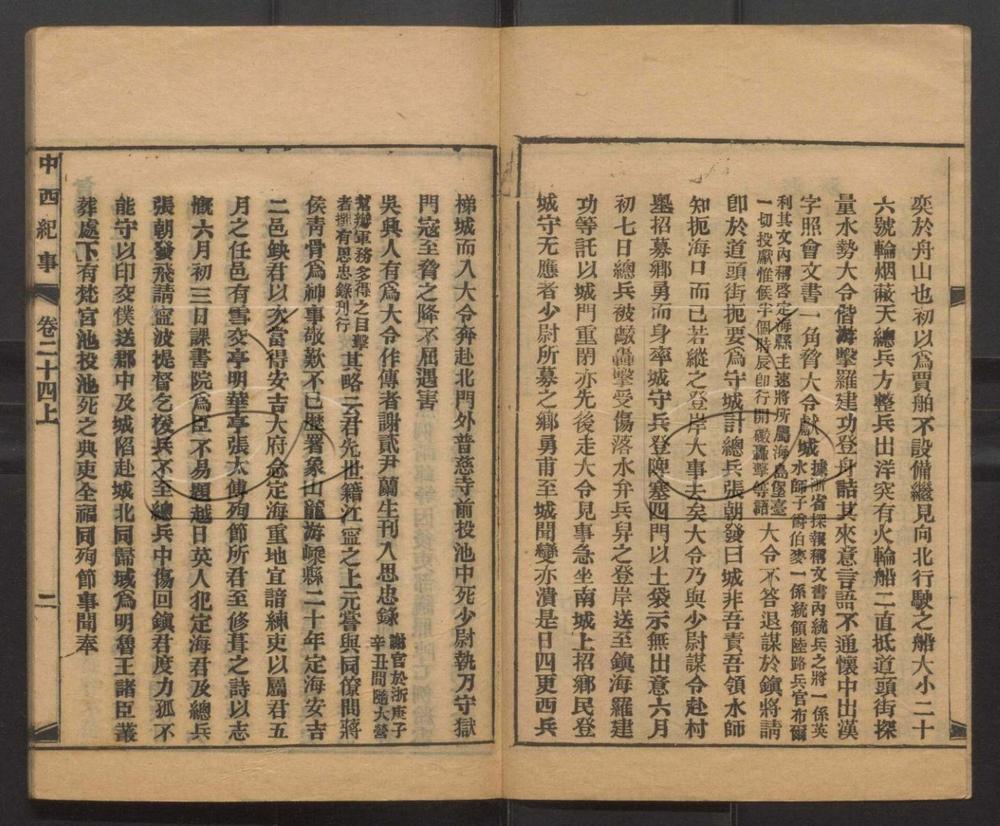 奕於舟山也初以爲賈舶不設備繼見向北行駛之船大小二十
六號輪烟蔽天總兵方整兵出洋突有火輪船二直抵道頭街探
量水勢大令偕游擊羅建功登舟詰其來意言語不通懷中出漢
字照會文書一角脅大令獻城據浙省探報稱文書內統兵之將一係英
水師子爵伯麥一係統領陸路兵官布爾
利其文內稱啓定海縣主速將所屬海島堡臺
一切投獻惟候半個時辰卽行開礮轟擊等語大令不答退謀於鎮將請
卽於道頭街扼要爲守城計總兵張朝發曰城非吾責吾領水師
知扼海口而已若縱之登岸大事去矣大令乃與少尉謀令赴村
墨招募鄉勇而身率城守兵登陴塞四門以土袋示無出意六月
初七日總兵被礮轟擊受傷落水弁兵舁之登岸送至鎮海羅建
功等託以城門重閉亦先後走大令見事急坐南城上招鄉民登
城守无應者少尉所募之鄉勇甫至城聞變亦潰是日四更西兵
梯城而入大令奔赴北門外普慈寺前投池中死少尉執刀守獄
門寇至脅之降不屈遇害
吳興人有爲大令作傳者謝貳尹蘭生刊入思忠錄謝官於浙庚子
辛丑間隨大營
幫辦軍務多得之目擊
者撰有思忠錄刊行其略云君先世籍江寧之上元嘗與同僚閒將
侯靑骨爲神事敬歎不已歷署象山龍游嵊縣二十年定海安吉
二邑缺君以次當得安吉大府念定海重地宜諳練吏以屬君五
月之任邑有雪交亭明華亭張太傅殉節所君至修葺之詩以志
慨六月初三日課書院爲臣不易題越日英人犯定海君及總兵
張朝發飛請寧波提督乞援兵不至總兵中傷回鎮君度力孤不
能守以印交僕送郡中及城陷赴城北同歸域爲明魯王諸臣叢
葬處下有梵宮池投池死之典吏全福同殉節事聞奉
中西紀事
卷二十四上
二